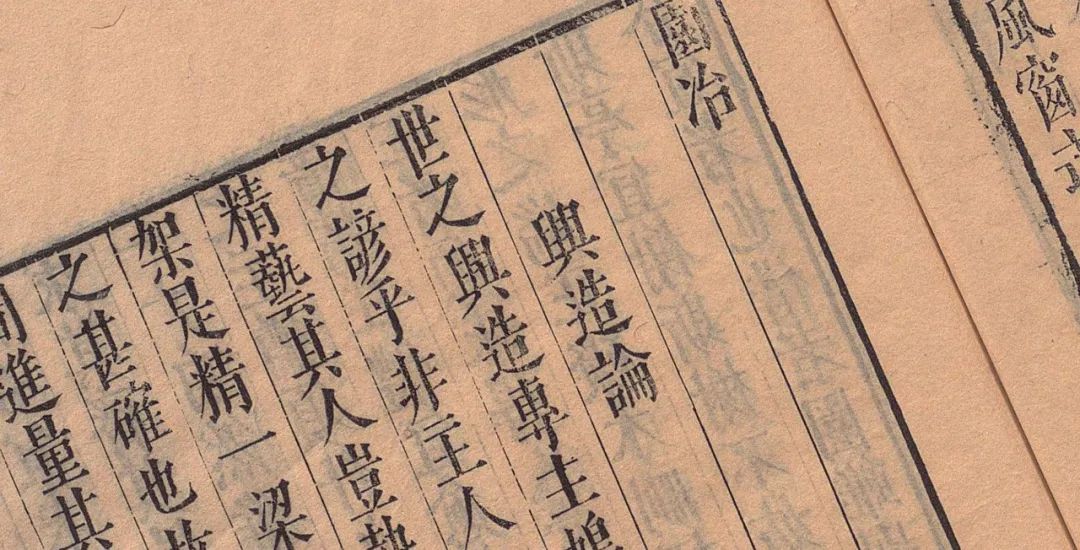 風窗
園冶
興造論
世之興造專主
之諺乎非主人
精藝其人豈
架是精一梁
之甚確也故
進量其